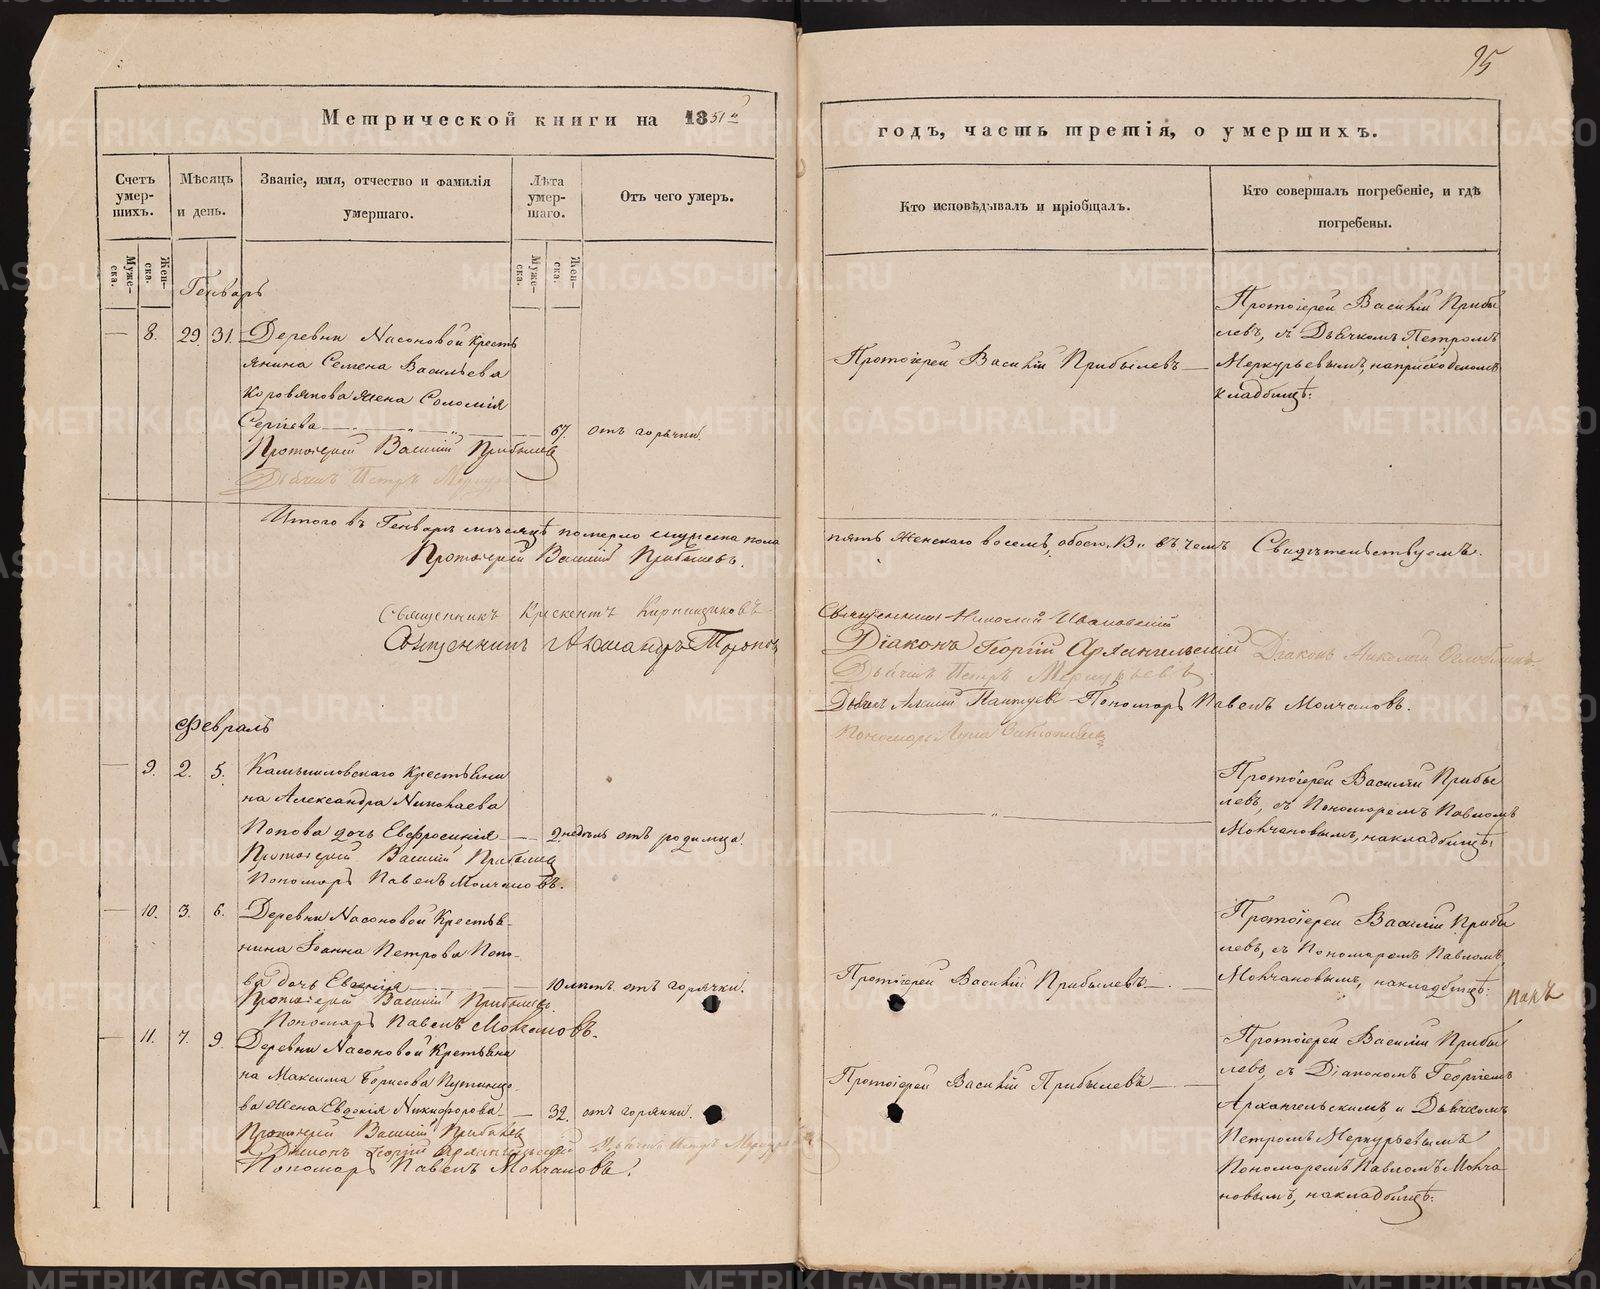 95
Метрической книги на 1851й
годъ, часть третія, о умершихъ.
Счетъ умер-шихъ.
Мѣсяцъ и день.
Званіе, имя, отчество и фамилія умершаго.
Лѣта умер-шаго.
Отъ чего умеръ.
Кто исповѣдывалъ и пріобщалъ.
Кто совершалъ погребеніе, и гдѣ погребены.
Муже-ска.
Жен-ска.
Муже-ска.
Жен-ска.
Генварь
8. 29. 31. Деревни Насоновой кресть
янина Семена Васильева
Коровякова жена Соломія
Сергіева 67. отъ горячки.
Протоіерей Василій Прибылевъ
Дьячекъ Петръ Меркурьевъ
Протоіерей Василій Прибылевъ
Протоіерей Василій Прибы
левъ, съ Дьячкомъ Петромъ
Меркурьевымъ, наприходскомъ
кладбищѣ.
Итого въ Генварѣ мѣсяцѣ померло мужеска пола
пять женскаго восемь, обоего, 13. въ чемъ Свидѣтельствуемъ.
Протоіерей Василій Прибылевъ.
Священникъ Крискентъ Кирпищиковъ
Священникъ Александръ Торопов
Священникъ Николай Ивановскій
Діаконъ Георгій Архангельскій Діаконъ Николай
Дьячекъ Петръ Меркурьевъ
Дьячекъ Пономарь Павелъ Молчановъ.
Пономарь
Февраль
9. 2. 5. Камышловскаго крестьяни
на Александра Николаева
Попова дочь Евфросинія 2 недѣль отъ родимца.
Протоіерей Василій Прибылевъ
Пономарь Павелъ Молчановъ.
Протоіерей Василій Прибы
левъ, съ Пономаремъ Павломъ
Молчановымъ, накладбищѣ.
10. 3. 6. Деревни Насоновой Крестья-
нина Іоанна Петрова Попо-
ва дочь Евгенія 10 лѣтъ. отъ горячки.
Протоіерей Василій Прибылевъ
Пономарь Павелъ Молчановъ.
Протоіерей Василій Прибылевъ
Протоіерей Василій Прибы
левъ, съ Пономаремъ Павломъ
Молчановымъ, накладбищѣ.
11. 7. 9. Деревни Насоновой Крестьяни
на Максима Борисова Путинцо-
ва жена Евдокія Никифорова 32. отъ горячки.
Протоіерей Василій Прибылевъ
Діаконъ Георгій Архангельскій Дьячекъ Петръ Меркурьевъ
Пономарь Павелъ Молчановъ.
Протоіерей Василій Прибылевъ
Протоіерей Василій Прибы
левъ, съ Діакономъ Георгіемъ
Архангельскимъ и Дьячкомъ
Петромъ Меркурьевымъ
Пономаремъ Павломъ Молча
новымъ, накладбищѣ.
METRIKI.GASO-URAL.RU